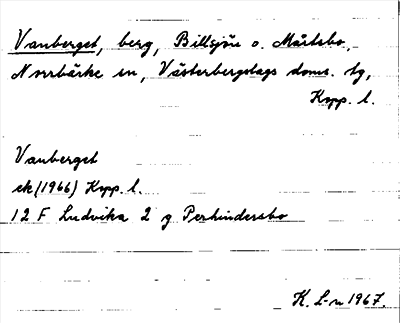 Vanberget, berg, Billsjön o. Mårtsbo,
Norrbärke sn, Västerbergslags doms. tg,
Kopp. l.
Vanberget
ek (1966) Kopp. l.
12 F Ludvika 2 g Perhindersbo
K. L-n 1967.